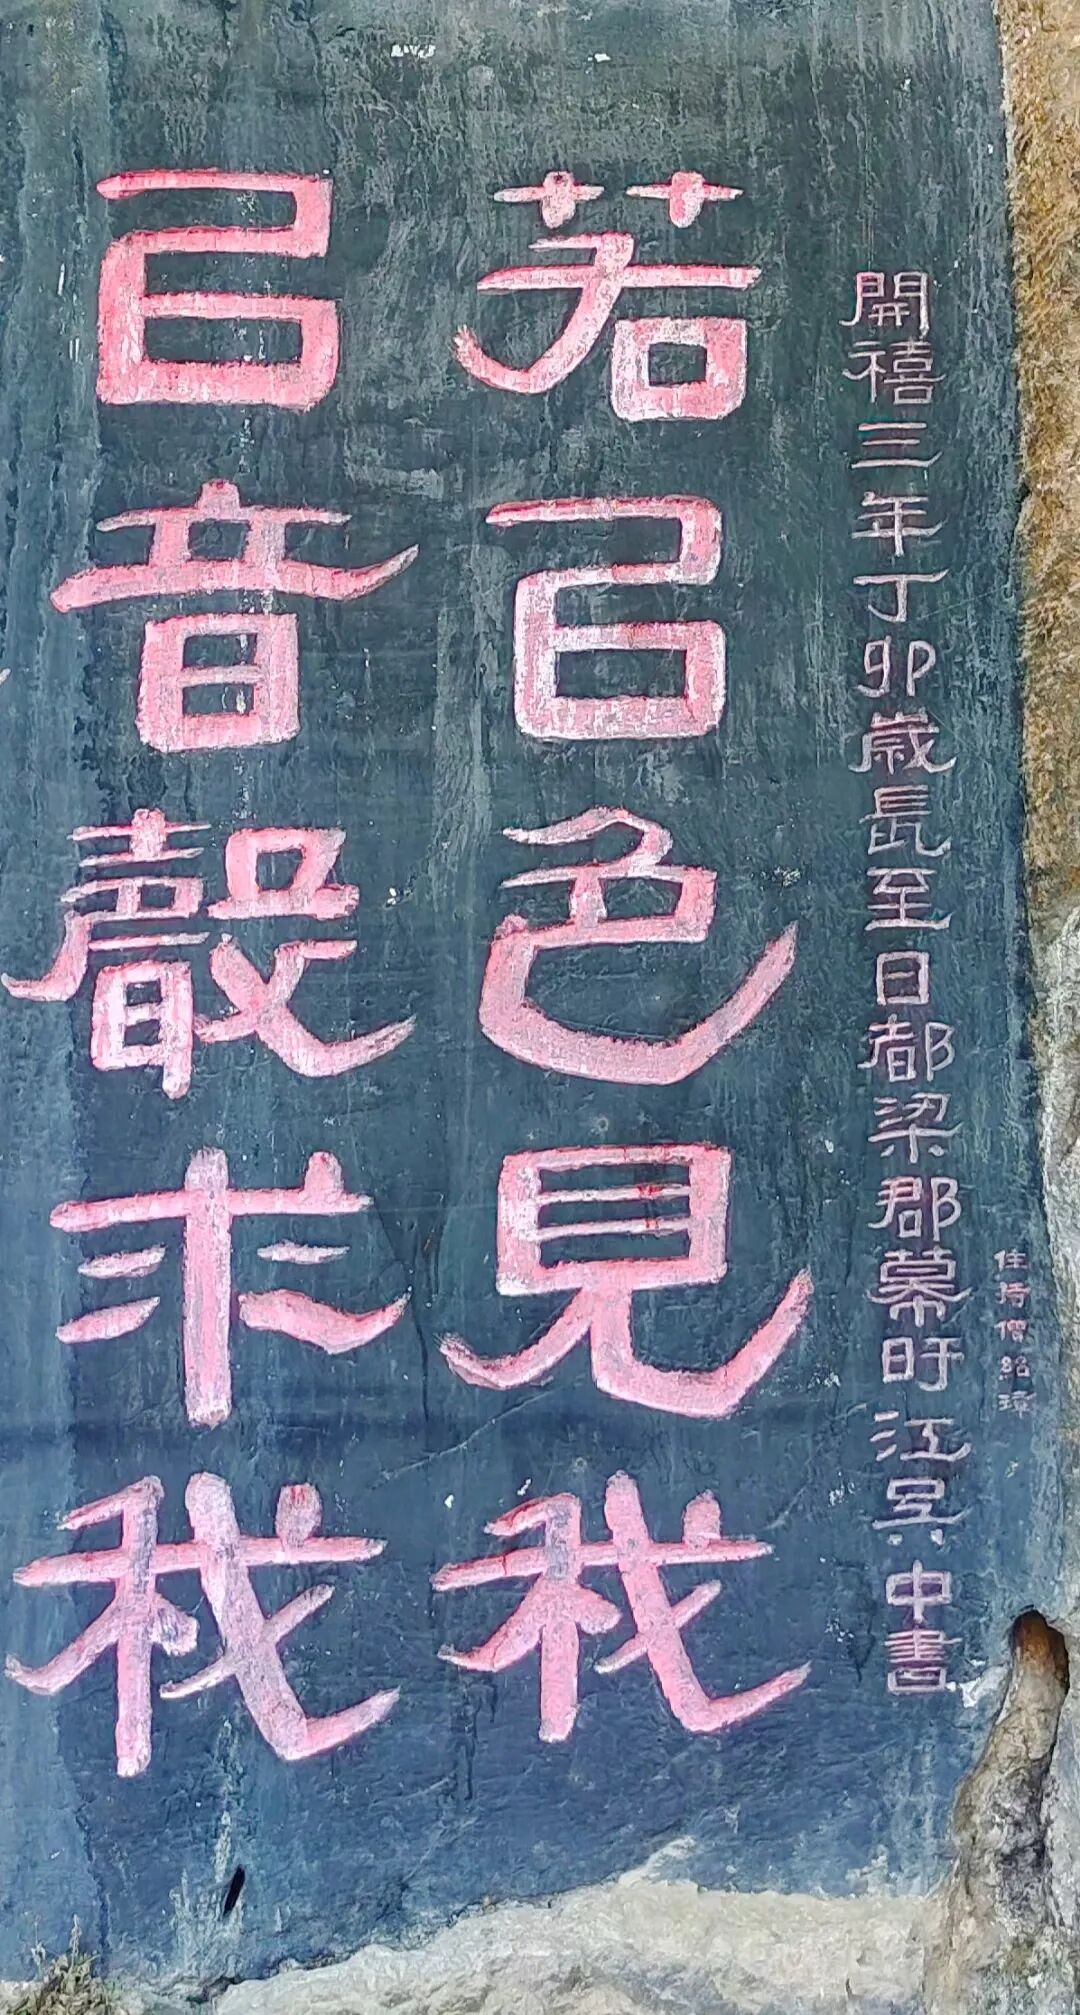 住持僧紹
開禧三年丁卯歲長至日都梁郡幕盱江吳中書
若㠯色見我
㠯音聲求我